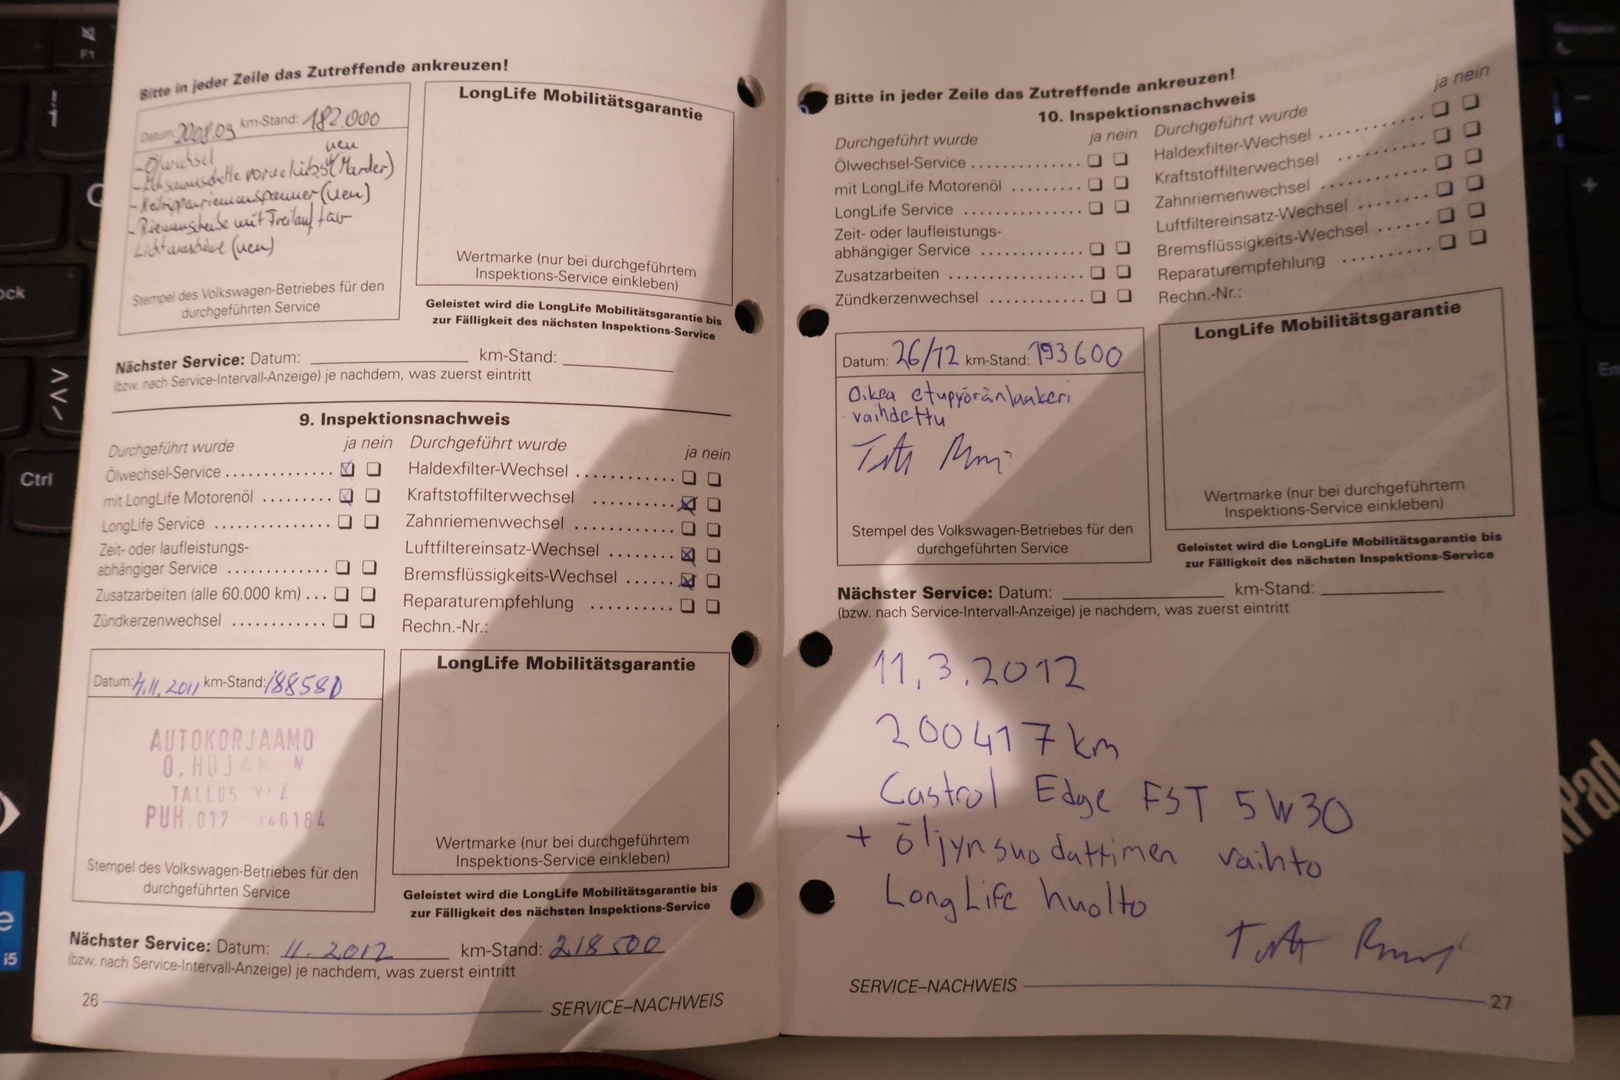 Bitte in jeder Zeile das Zutreffende ankreuzen!
Datum: km-Stand: 182.000
- Ölwechsel neu
(Marder)
- Keilrippenriemenspanner (neu)
- Riemenscheibe mit Freilauf für
Lichtmaschine (neu)
Stempel des Volkswagen-Betriebes für den
durchgeführten Service
LongLife Mobilitätsgarantie
Wertmarke (nur bei durchgeführtem
Inspektions-Service einkleben)
Geleistet wird die LongLife Mobilitätsgarantie bis
zur Fälligkeit des nächsten Inspektions-Service
Nächster Service: Datum: km-Stand:
(bzw. nach Service-Intervall-Anzeige) je nachdem, was zuerst eintritt
9. Inspektionsnachweis
Durchgeführt wurde ja nein
Ölwechsel-Service
mit LongLife Motorenöl
LongLife Service
Zeit- oder laufleistungs-
abhängiger Service
Zusatzarbeiten (alle 60.000 km)
Zündkerzenwechsel
Durchgeführt wurde ja nein
Haldexfilter-Wechsel
Kraftstoffilterwechsel
Zahnriemenwechsel
Luftfiltereinsatz-Wechsel
Bremsflüssigkeits-Wechsel
Reparaturempfehlung
Rechn.-Nr.:
Datum: 4.11.2011 km-Stand: 188580
AUTOKORJAAMO
O.
PUH.
Stempel des Volkswagen-Betriebes für den
durchgeführten Service
LongLife Mobilitätsgarantie
Wertmarke (nur bei durchgeführtem
Inspektions-Service einkleben)
Geleistet wird die LongLife Mobilitätsgarantie bis
zur Fälligkeit des nächsten Inspektions-Service
Nächster Service: Datum: 11.2012 km-Stand: 218500
(bzw. nach Service-Intervall-Anzeige) je nachdem, was zuerst eintritt
26 SERVICE–NACHWEIS
Bitte in jeder Zeile das Zutreffende ankreuzen!
10. Inspektionsnachweis
Durchgeführt wurde ja nein
Ölwechsel-Service
mit LongLife Motorenöl
LongLife Service
Zeit- oder laufleistungs-
abhängiger Service
Zusatzarbeiten
Zündkerzenwechsel
Durchgeführt wurde ja nein
Haldexfilter-Wechsel
Kraftstoffilterwechsel
Zahnriemenwechsel
Luftfiltereinsatz-Wechsel
Bremsflüssigkeits-Wechsel
Reparaturempfehlung
Rechn.-Nr.:
Datum: 26/12 km-Stand: 193600
Oikea etupyöränlaakeri
vaihdettu
Stempel des Volkswagen-Betriebes für den
durchgeführten Service
LongLife Mobilitätsgarantie
Wertmarke (nur bei durchgeführtem
Inspektions-Service einkleben)
Geleistet wird die LongLife Mobilitätsgarantie bis
zur Fälligkeit des nächsten Inspektions-Service
Nächster Service: Datum: km-Stand:
(bzw. nach Service-Intervall-Anzeige) je nachdem, was zuerst eintritt
11.3.2012
200417 km
Castrol Edge FST 5W30
+ öljynsuodattimen vaihto
LongLife huolto
SERVICE–NACHWEIS 27
F1
Ctrl
i5